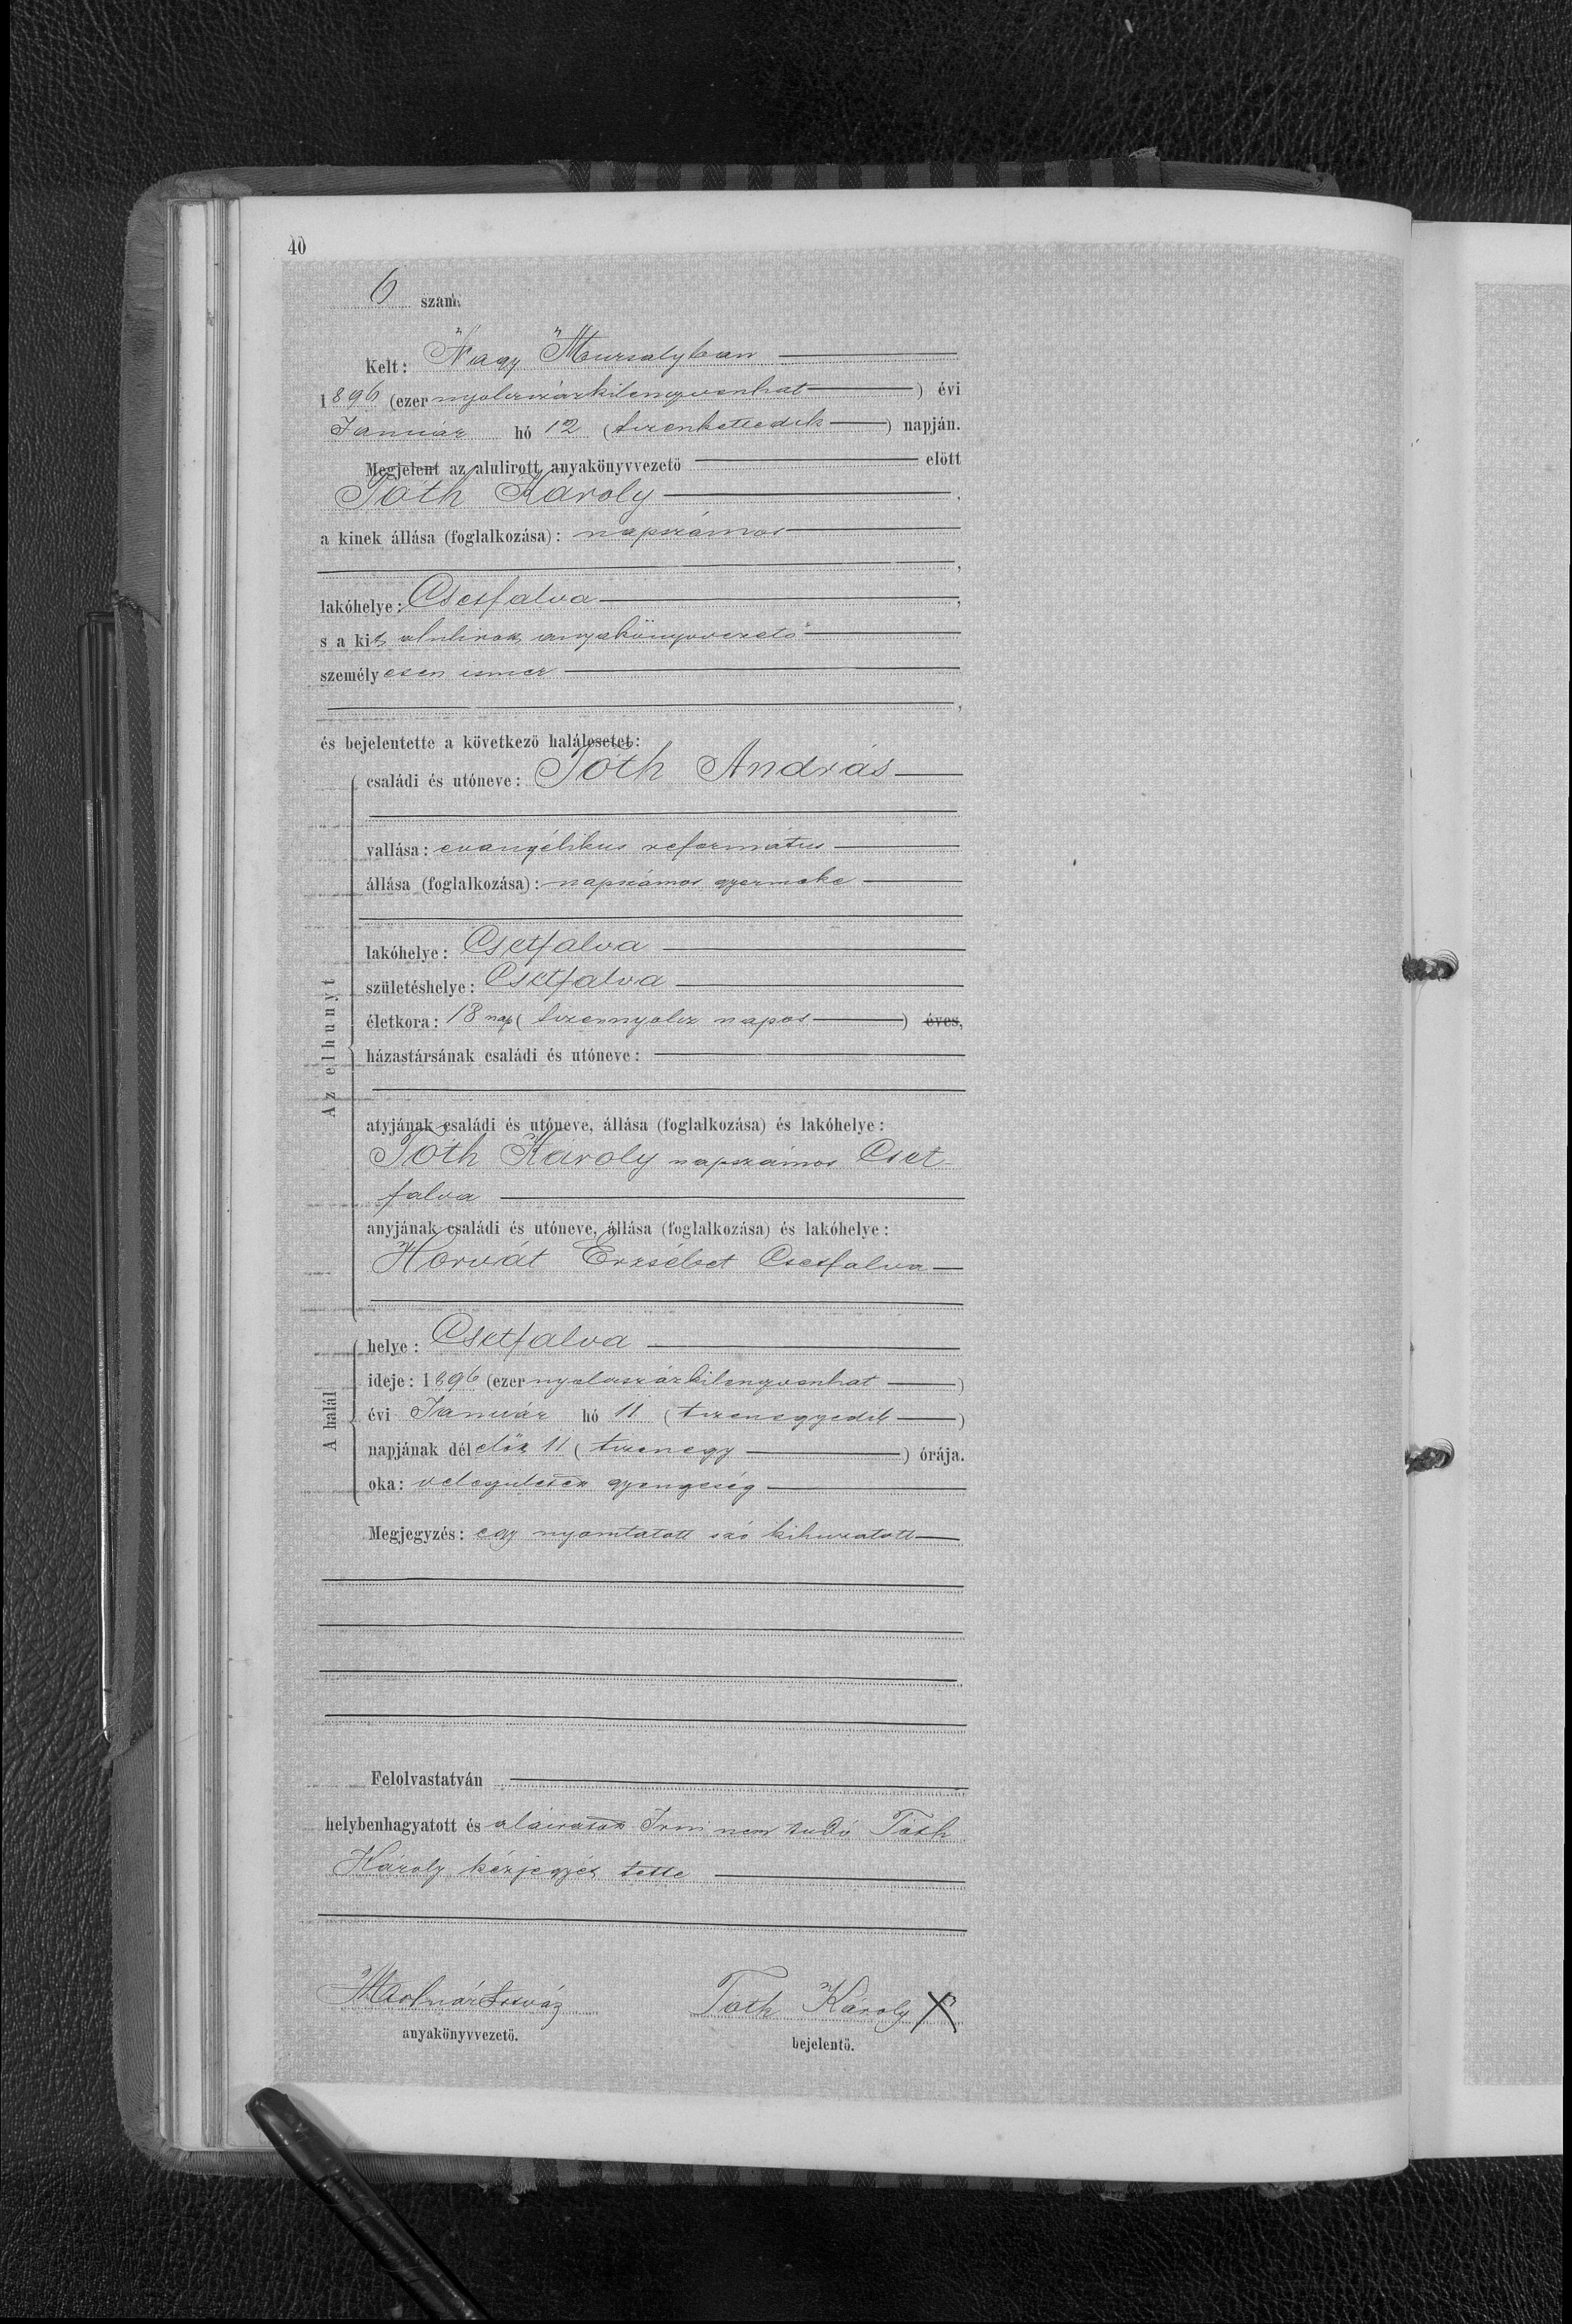 40
6 szám.
Kelt: Nagy Muzsalyban
1896 (ezer nyolczszázkilenczvenhat) évi
Január hó 12 (tizenkettedik) napján.
Megjelent az alulirott anyakönyvvezető előtt
Tóth Károly,
a kinek állása (foglalkozása): napszámos
,
lakóhelye: Csetfalva,
s a kit alulirott anyakönyvvezető
személyesen ismer
,
és bejelentette a következő halálesetet:
családi és utóneve: Tóth András
vallása: evangélikus református
állása (foglalkozása): napszámos gyermeke
lakóhelye: Csetfalva
születéshelye: Csetfalva
Az elhunyt
életkora: 18 nap (tizennyolcz napos) éves,
házastársának családi és utóneve:
atyjának családi és utóneve, állása (foglalkozása) és lakóhelye:
Tóth Károly napszámos Cset-
falva
anyjának családi és utóneve, állása (foglalkozása) és lakóhelye:
Horvát Erzsébet Csetfalva
helye: Csetfalva
ideje: 1896 (ezer nyolczszázkilenczvenhat)
A halál
évi Január hó 11 (tizenegyedik)
napjának délelőtt 11 (tizenegy) órája.
oka: veleszületett gyengeség
Megjegyzés: egy nyomtatott szó kihuzatott
Felolvastatván
helybenhagyatott és aláiratott Irni nem tudó Tóth
Károly kézjegyét tette
Molnár
Tóth Károly X
anyakönyvvezető.
bejelentő.